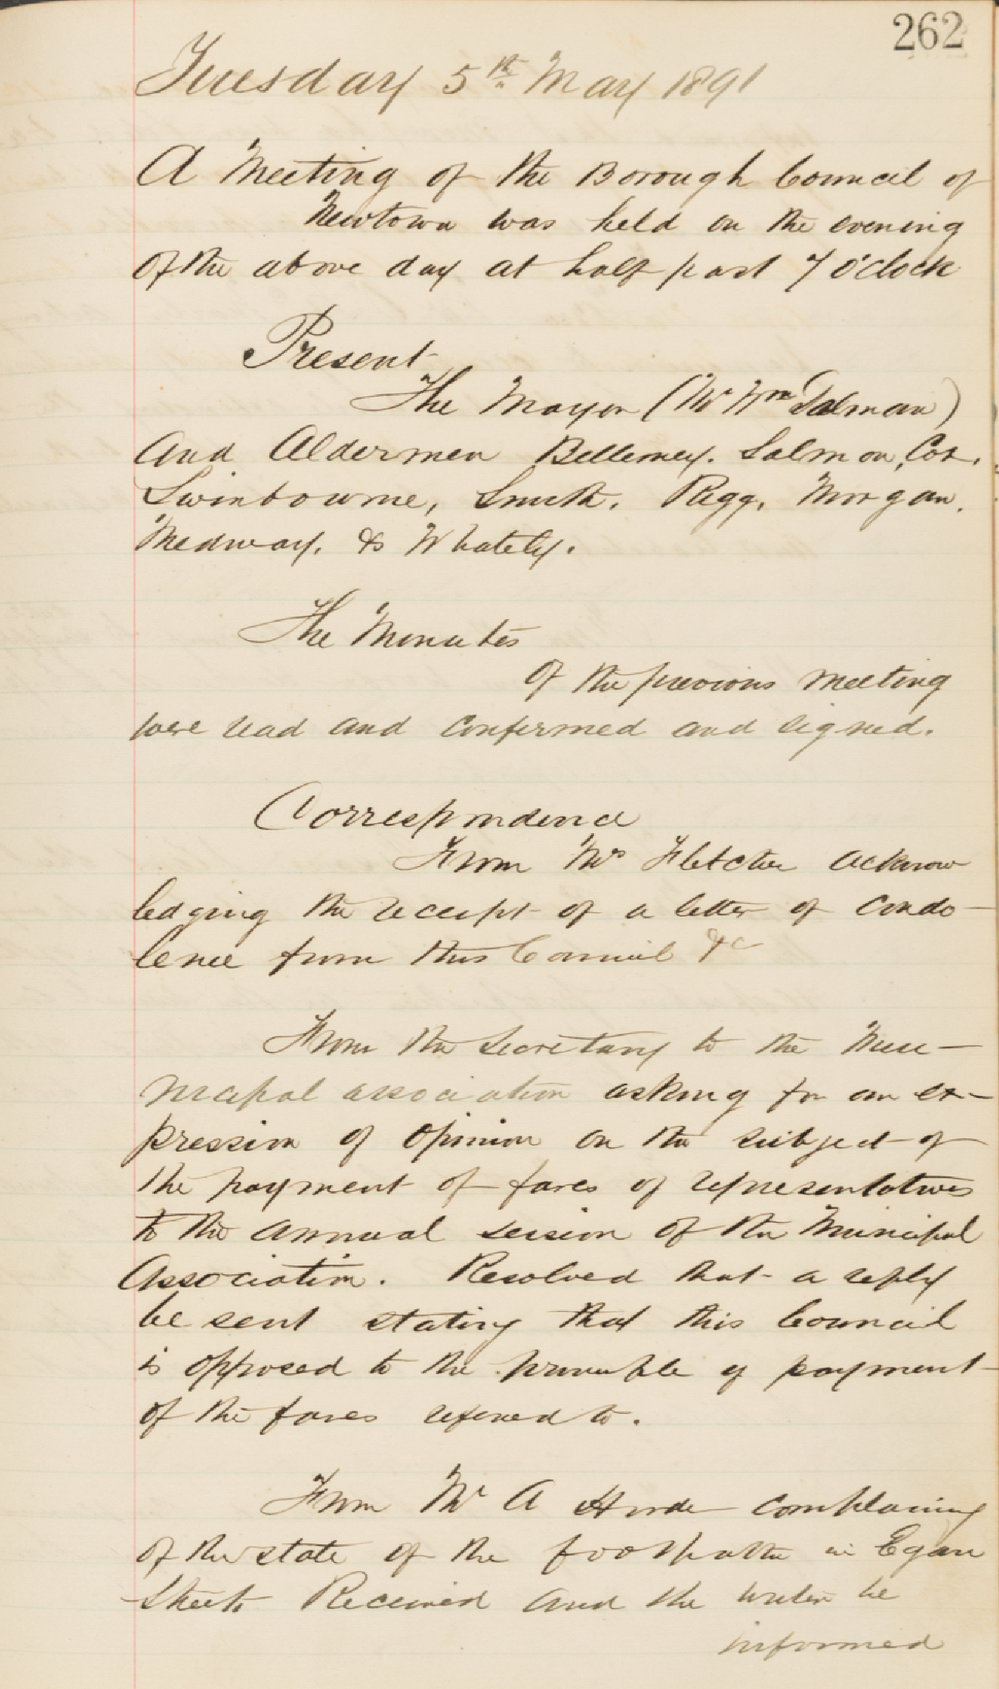 262
Tuesday 5th May 1891
A Meeting of the Borough Council of
Newtown was held on the evening
of the above day at half past 7 o'clock
Present
The Mayor (Mr Wm Dolman)
And Aldermen Bellemey. Salmon, Cox.
Swinbourne, Smith. Rigg. Morgan.
Medway. & Whately.
The Minutes
of the previous meeting
were read and confirmed and signed.
Correspondence
From Mrs Fletcher acknow
ledging the receipt of a letter of condo-
lence from this Council &c
From the Secretary to the Mun-
nicipal association asking for an ex-
pression of opinion on the subject of
the payment of fares of representatives
to the annual session of the Municipal
Association. Resolved that a reply
be sent stating that this Council
is opposed to the principle of payment
of the fares refered to.
From Mr A complaining
of the state of the footpath in Egan
Street Received and the writer be
informed